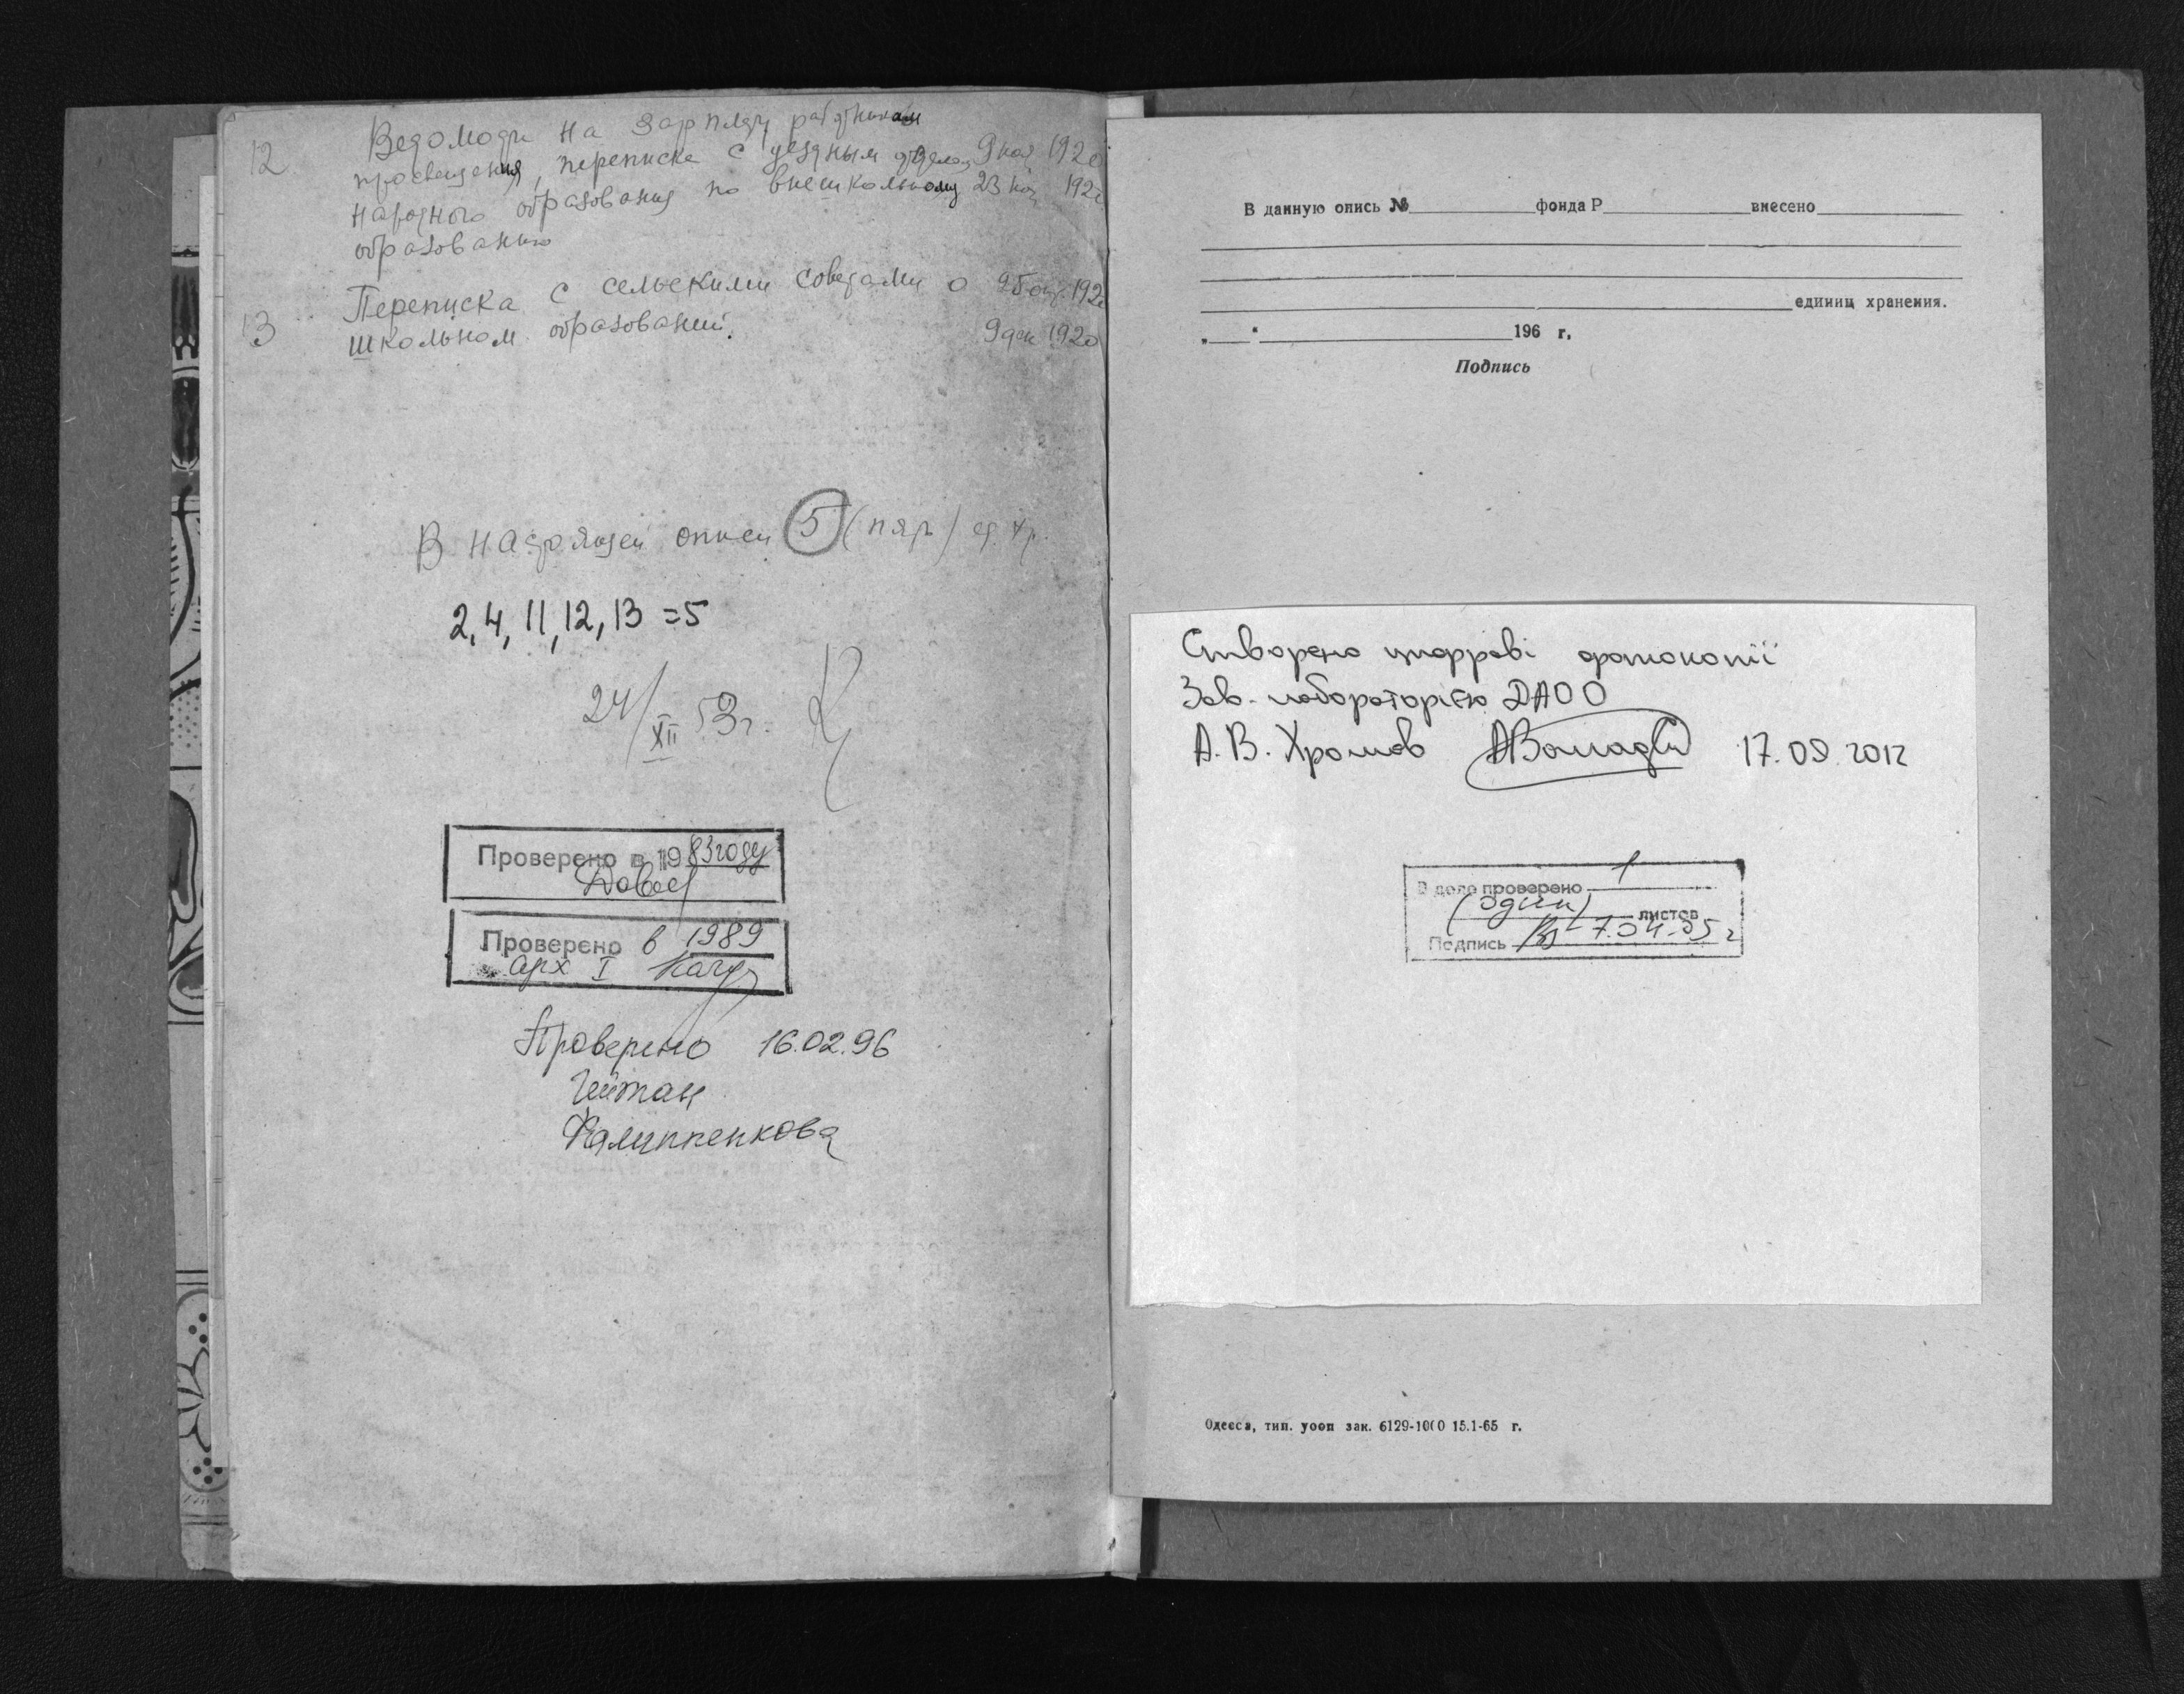 12 Ведомости на зарплату работникам
просвещения, переписка с уездным отделом 9 ноя 1920
народного образования по внешкольному 23 ноя 1920
образованию
13 Переписка с сельскими советами о 25 окт. 1920
школьном образовании. 9 дек 1920
В настоящей описи 5 (пять) ед. хр.
2, 4, 11, 12, 13 = 5
24/XII 53 г.
Проверено в 1983 году
Проверено в 1989
арх I
Проверено 16.02.96
Гейтан
Филиппенкова
В данную опись № фонда Р внесено
единиц хранения.
„ “ 196 г.
Подпись
Створено цифрові фотокопії
Зав. лабораторією ДАОО
А. В. Хромов 17.09.2012
В деле проверено 1
(один) листов
Подпись 7.04.05 г
Одесса, тип. уооп зак. 6129-1000 15.1-65 г.